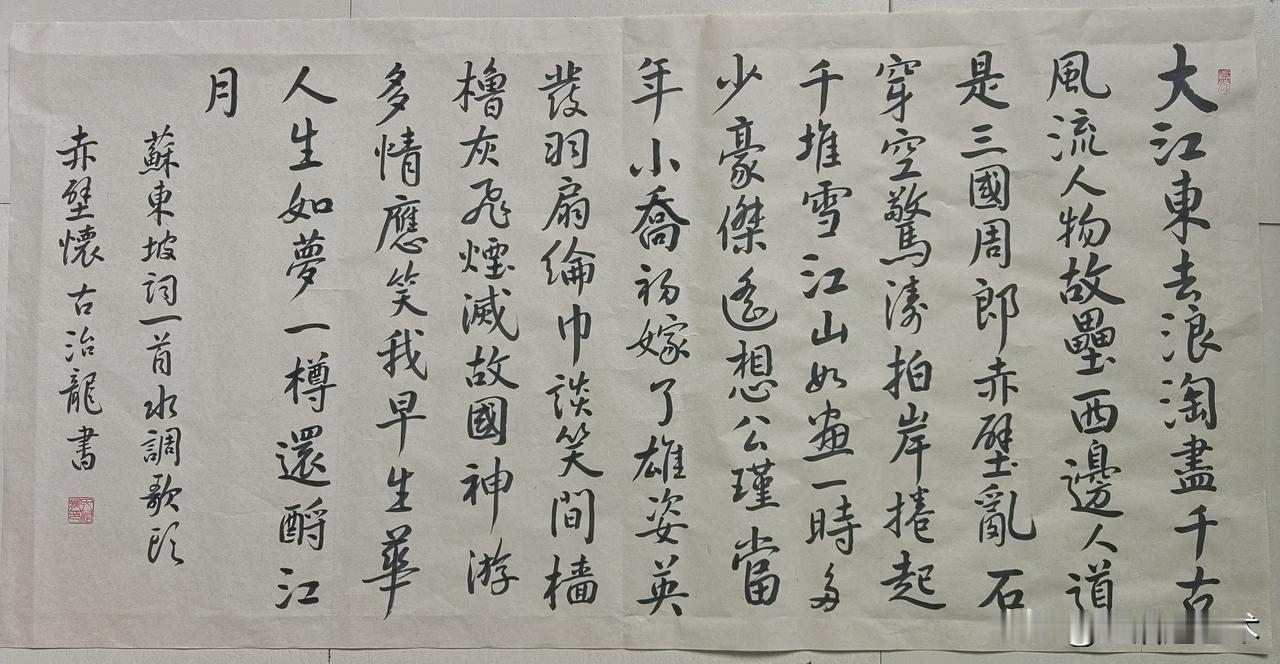 大江東去浪淘盡千古
風流人物故壘西邊人道
是三國周郎赤壁亂石
穿空驚濤拍岸捲起
千堆雪江山如畫一時多
少豪傑遙想公瑾當
年小喬初嫁了雄姿英
發羽扇綸巾談笑間檣
櫓灰飛煙滅故國神游
多情應笑我早生華
人生如夢一樽還酹江
月
蘇東坡詞一首水調歌頭
赤壁懷古治龍書